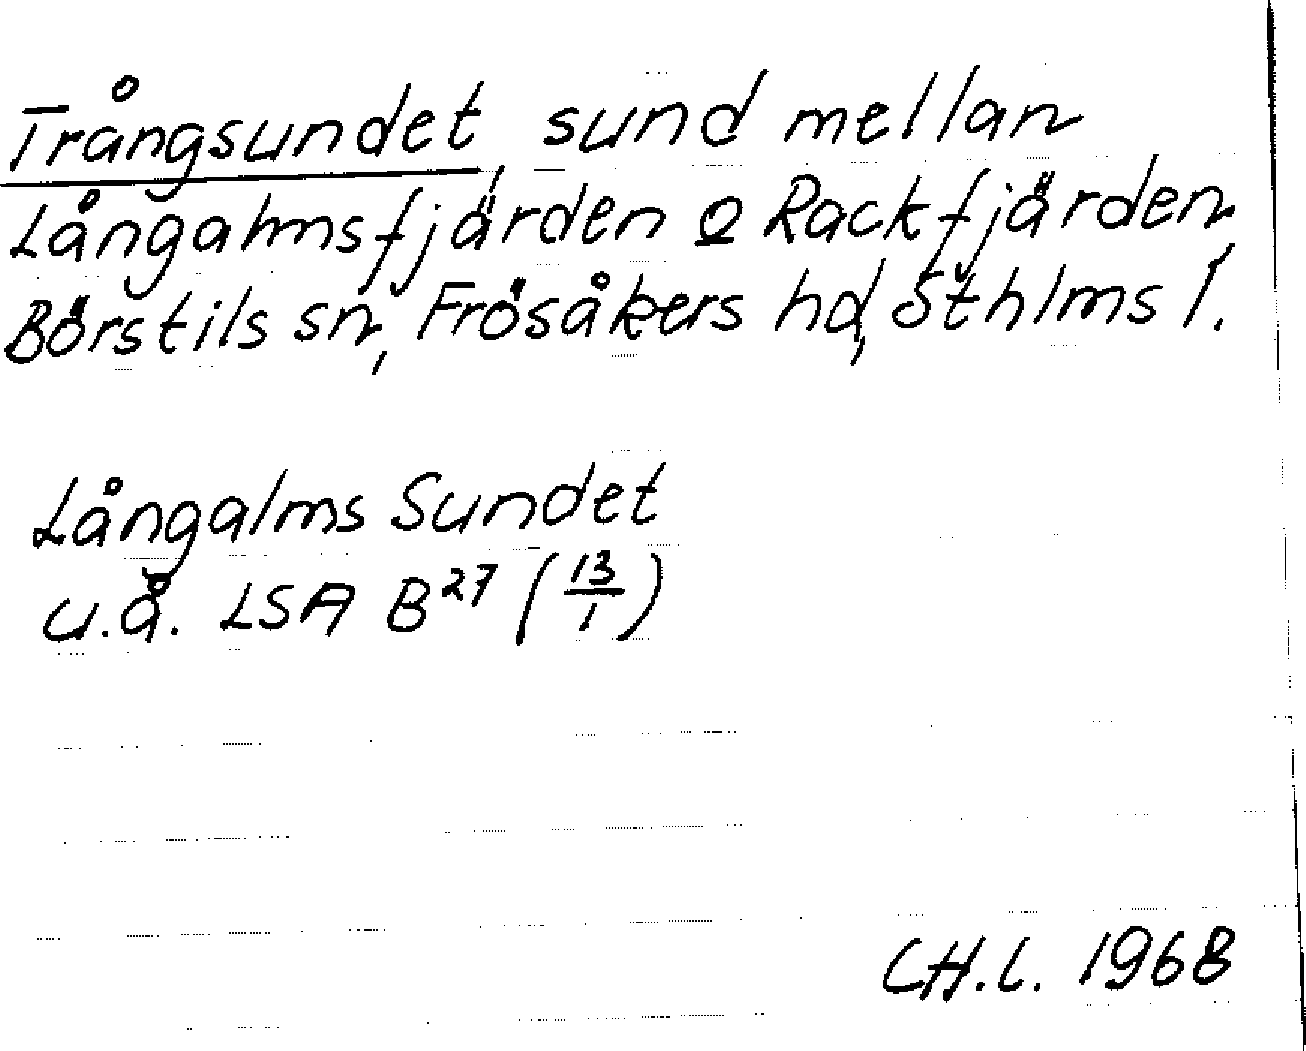 Trångsundet, sund mellan
Långalmsfjärden o Rackfjärden,
Börstils sn, Frösåkers hd, Sthlms l.
Långalms Sundet
u.å. LSA B27 (13/1)
CH.L. 1968